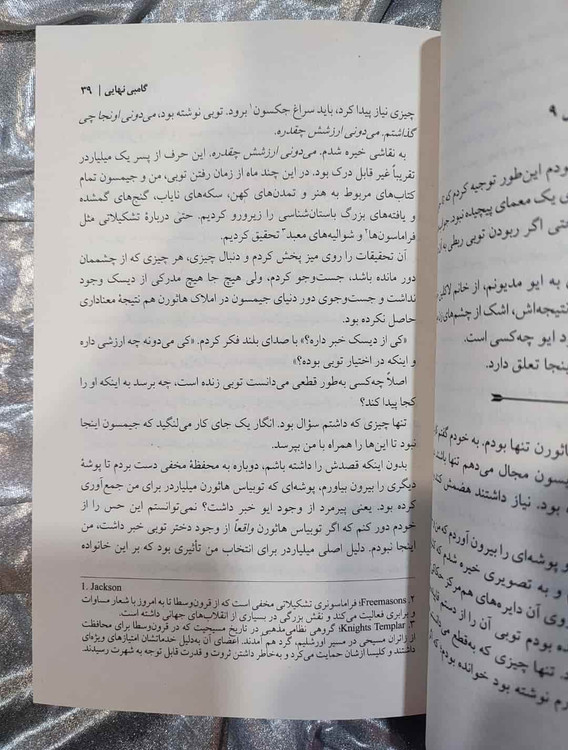 گامبی نهایی | ۳۹
چیزی نیاز پیدا کرد، باید سراغ جکسون۱ برود. توبی نوشته بود، می‌دونی اونجا چی
گذاشتم. می‌دونی ارزشش چقدره.
به نقاشی خیره شدم. می‌دونی ارزشش چقدره. این حرف از پسر یک میلیاردر
تقریباً غیر قابل درک بود. در این چند ماه از زمان رفتن توبی، من و جیمسون تمام
کتاب‌های مربوط به هنر و تمدن‌های کهن، سکه‌های نایاب، گنج‌های گمشده
و یافته‌های بزرگ باستان‌شناسی را زیرورو کردیم. حتی دربارهٔ تشکیلاتی مثل
فراماسون‌ها۲ و شوالیه‌های معبد۳ تحقیق کردیم.
آن تحقیقات را روی میز پخش کردم و دنبال چیزی، هر چیزی که از چشممان
دور مانده باشد، جست‌وجو کردم، ولی هیچ جا هیچ مدرکی از دیسک وجود
نداشت و جست‌وجوی دور دنیای جیمسون در املاک هائورن هم نتیجهٔ معناداری
حاصل نکرده بود.
«کی از دیسک خبر داره؟» با صدای بلند فکر کردم. «کی می‌دونه چه ارزشی داره
و اینکه در اختیار توبی بوده؟»
اصلاً چه‌کسی به‌طور قطعی می‌دانست توبی زنده است، چه برسد به اینکه او را
کجا پیدا کند؟
تنها چیزی که داشتم سؤال بود. انگار یک جای کار می‌لنگید که جیمسون اینجا
نبود تا این‌ها را همراه با من بپرسد.
بدون اینکه قصدش را داشته باشم، دوباره به محفظهٔ مخفی دست بردم تا پوشهٔ
دیگری را بیرون بیاورم، پوشه‌ای که توبیاس هائورن میلیاردر برای من جمع‌آوری
کرده بود. یعنی پیرمرد از وجود ایو خبر داشت؟ نمی‌توانستم این حس را از
خودم دور کنم که اگر توبیاس هائورن واقعاً از وجود دختر توبی خبر داشت، من
اینجا نبودم. دلیل اصلی میلیاردر برای انتخاب من تأثیری بود که بر این خانواده
1. Jackson
۲. Freemasons؛ فراماسونری تشکیلاتی مخفی است که از قرون‌وسطا تا به امروز با شعار مساوات
و برابری فعالیت می‌کند و نقش بزرگی در بسیاری از انقلاب‌های جهانی داشته است.
۳. Knights Templar؛ گروهی نظامی‌مذهبی در تاریخ مسیحیت که در قرون‌وسطا برای محافظت
از زائران مسیحی در مسیر اورشلیم، گرد هم آمدند. اعضای آن به‌دلیل خدماتشان امتیازهای ویژه‌ای
داشتند و کلیسا ازشان حمایت می‌کرد و به‌خاطر داشتن ثروت و قدرت قابل توجه به شهرت رسیدند.
ودم این‌طور توجیه کردم که
ی یک معمای پیچیده نبود.
حتی اگر ربودن توبی ربطی به
به ایو مدیونم، از خانم
نتیجه‌اش، اشک از چشم‌های
رد ایو چه‌کسی است.
ینجا تعلق دارد.
هائورن تنها بودم. به خودم گفتم
یسون مجال می‌دهم تنها باشد
بود. نیاز داشتند هضمش کنند
و پوشه‌ای را بیرون آوردم که
م و به تصویری خیره شدم که
وی آن دایره‌های هم‌مرکز
ده بودم توبی آن را از دستم
و تنها چیزی که به‌قطع
رم نوشته بود خوانده بودم: